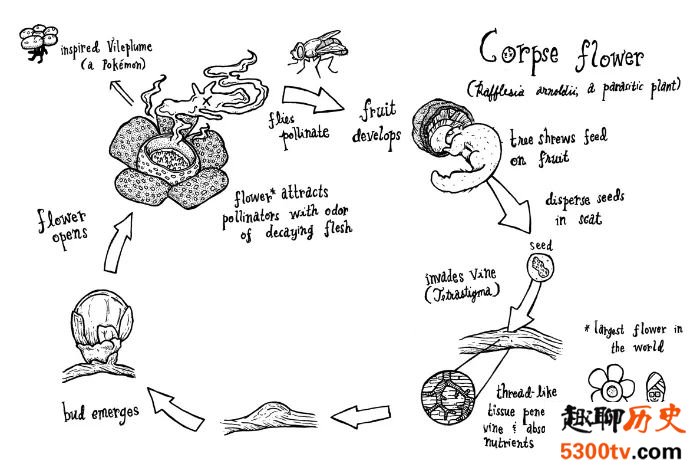 inspired Vileplume
(a Pokémon)
Corpse flower
(Rafflesia arnoldii, a parasitic plant)
flies
pollinate
fruit
develops
tree shrews feed
on fruit
flower* attracts
pollinators with odor
of decaying flesh
disperse seeds
in scat
flower
opens
seed
invades vine
(Tetrastigma)
*largest flower in
the world
bud emerges
thread-like
tissue pene
vine & abso
nutrients
趣聊历史
5300tv.com